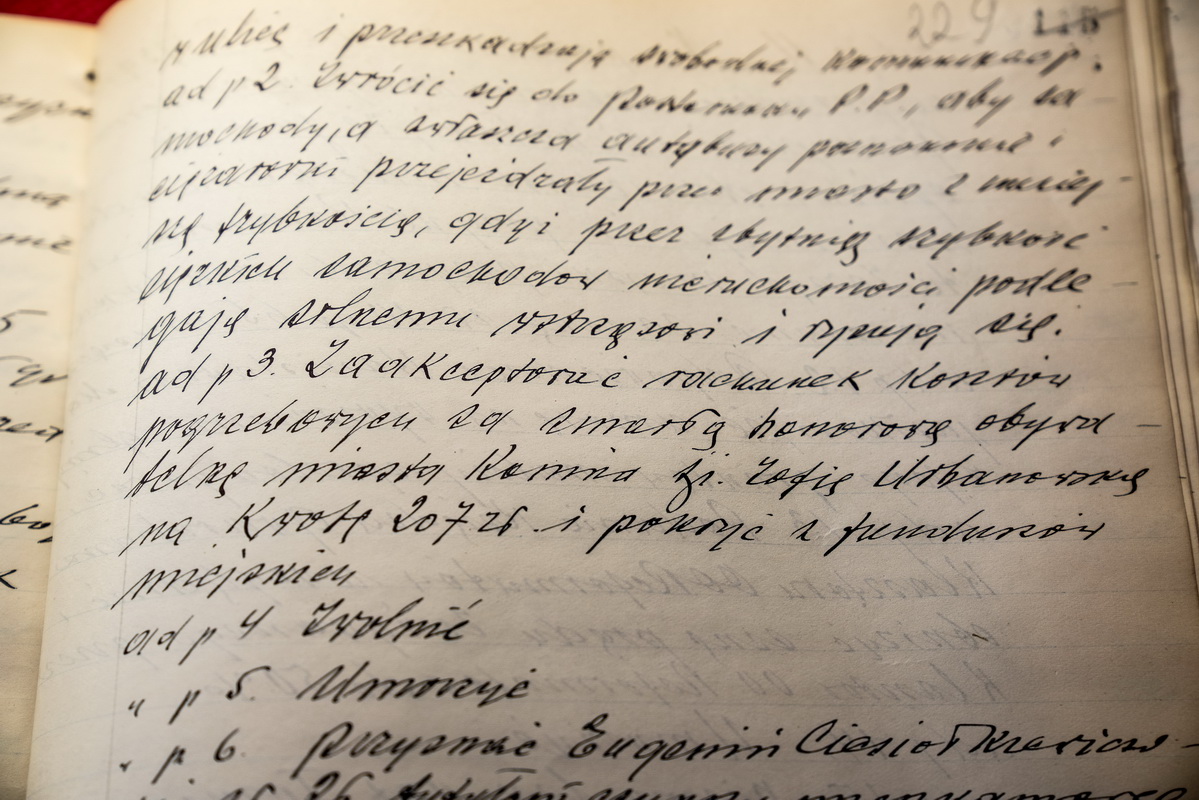 229 115
ulicę i przeszkadzają swobodnej komunikacji.
ad p 2. Zwrócić się do Posterunku P.P., aby sa-
mochody, a zwłaszcza autobusy pasażerskie i
ciężarowe przejeżdżały przez miasto z mniej-
szą szybkością, gdyż przez zbytnią szybkość
ciężkich samochodów nieruchomości podle-
gają silnemu wstrząsowi i rysują się.
ad p 3. Zaakceptować rachunek kosztów
pogrzebowych za zmarłą honorową obywa-
telkę miasta Konina śp. Zofię Urbanowską
na kwotę 207 zł. i pokryć z funduszów
miejskich
ad p 4 Zwolnić
" p 5. Umorzyć
" p 6. przyznać Eugenii Ciesiołkiewiczo-
26 tytułem